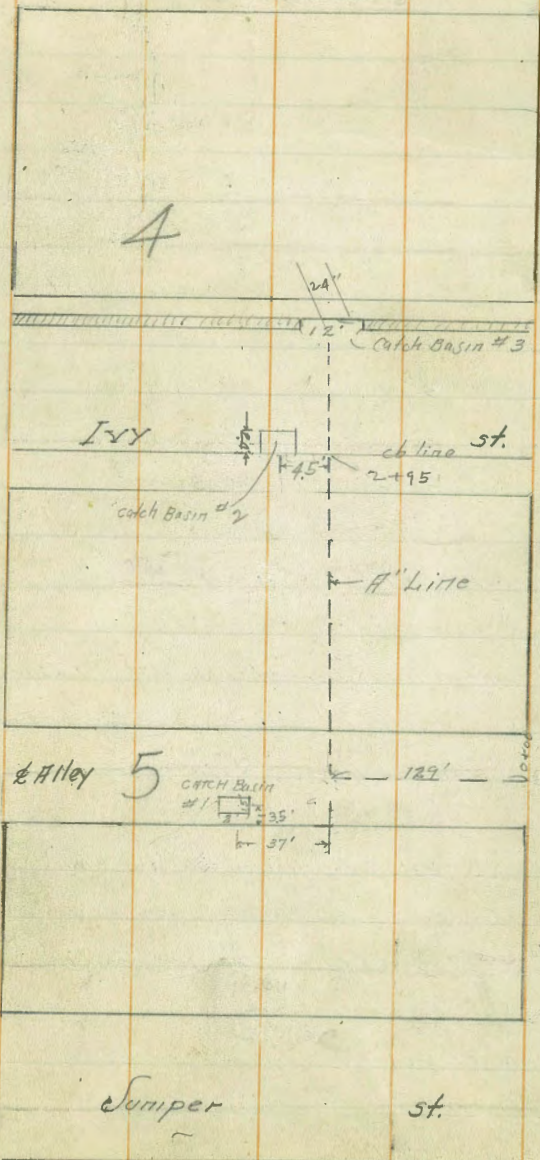 4
24"
12'
Catch Basin #3
Ivy st.
4.5'
cb line
2+95
catch Basin #2
A" Line
⅊ Alley 5
129'
0+00
CATCH Basin
#1
3.5'
37'
Juniper st.